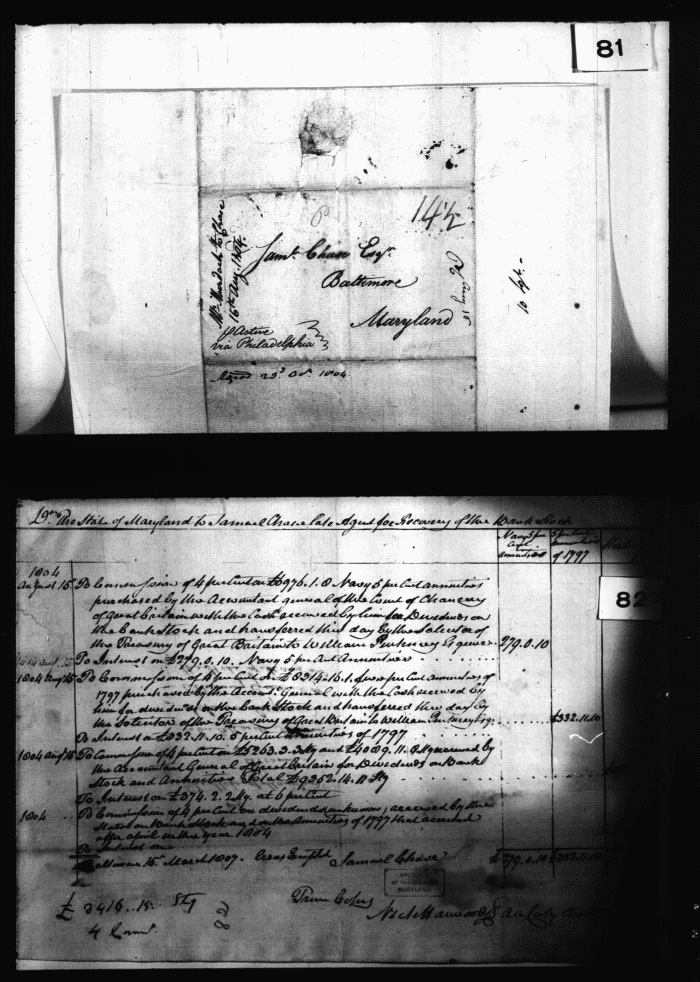 81
14½
Mr. Murdock to Chase
16th Aug. 1804.
Saml. Chase Esqr.
Baltimore
Maryland
p Active
via Philadelphia
23d Oct. 1804
10 Sept.
Drs. The State of Maryland to Samuel Chase late Agent for Recovery of the Bank Stock
Navy 5 per Cent annuities
5 per Cent annuities of 1797
82
1804
August 15 To Commission of 4 per Cent on £6976.1.8 Navy 5 per Cent annuities
purchased by the Accountant general of the Court of Chancery
of Great Britain with the Cash received by him for Dividends on
the Bank Stock and transferred this day by the Solicitor of
the Treasury of Great Britain to William Pinkney Esquire 279.0.10
To Interest on £279.0.10. Navy 5 per Cent Annuities
1804 Aug 15 To Commission of 4 per Cent on £8314.16.1. five per Cent annuities of
1797 purchased by the Accot. General with the Cash received by
him for dividends on the Bank Stock and transferred this day by
the Solicitor of the Treasury of Great Britain to William Pinkney Esq. £332.11.10
To Interest on £332.11.10. 5 per Cent Annuities of 1797
1804 Aug 15 To Commission of 4 per Cent on £5263.3.3 Stg and £4089.11.8 Stg received by
the Accountant General of Great Britain for Dividends on Bank
Stock and Annuities Total £9352.14.11 Stg
To Interest on £374.2.2 Stg. at 6 per Cent
1804 To Commission of 4 per Cent on dividends unknown, received by the
State on Bank Stock and on the Annuities of 1797 that accrued
after april in the year 1804
To Interest on
Baltimore 15 March 1807. Errors Excepted Samuel Chase £279.0.10 £332.11.10
OF
MARYLAND
£ 2416..15. Stg
4 Comn.
82
True Copy